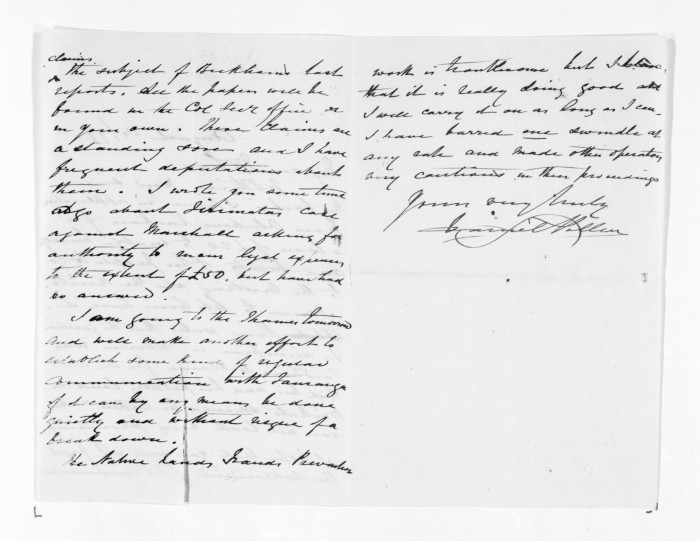 claims
the subject of Beckhams last
reports. All the papers will be
found in the Col Secs Office or
in your own. These Claims are
a standing sore and I have
frequent deputations about
them. I wrote you sometime
ago about case
against Marshall asking for
authority to incur legal expenses
to the extent of £50, but have had
no answer.
I am going to the Thames tomorrow
and will make another effort to
establish some kind of regular
communication with Tauranga
if it can by any means be done
quietly and without risque of a
break down.
The Native Lands Frauds Prevention
work is troublesome but I believe
that it is really doing good and
I will carry it on as long as I can.
I have barred one swindle at
any rate and made other operators
very cautious in their proceedings
Yours very truly
Daniel Pollen